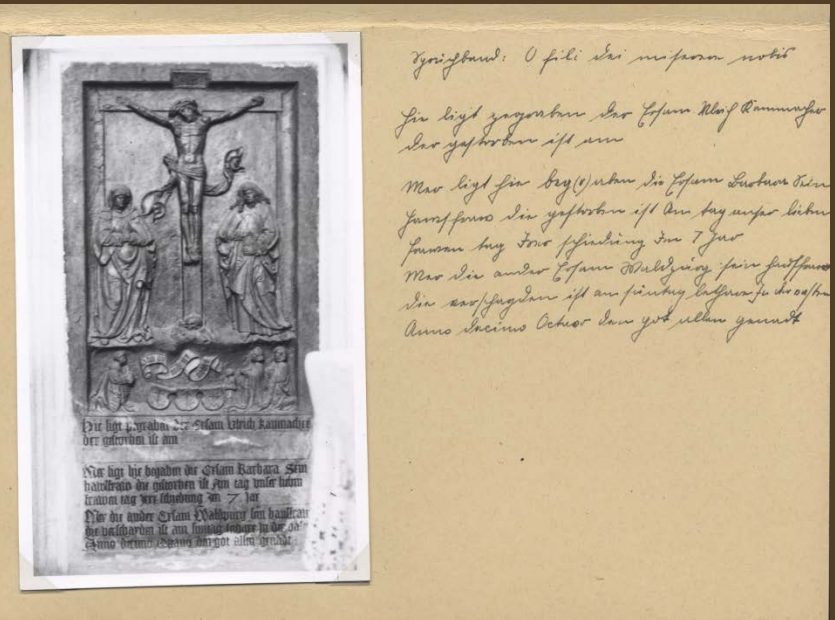 Hie ligt begraben der Ersam Ulrich kammacher
der gestorben ist am
Mer ligt hie begraben die Ersam Barbara Sein
hawsfraw die gestorben ist Am tag unser lieben
frawen tag irer schidung Im 7 Jar
Mer die ander Ersam Waldpurg sein hausfraw
die verschayden ist am suntag letare in der
Anno decimo der got allen genadt
Spruchband: O fili dei miserere nobis
Hie ligt begraben der Ersam Ulrich Kammacher
der gestorben ist am
Mer ligt hie beg(r)aben die Ersam Barbara Sein
hawsfraw die gestorben ist Am tag unser lieben
frawen tag Irer schiedung Im 7 Jar
Mer die ander Ersam Waldpurg sein hausfraw
die verschayden ist am suntag lethare In der vasten
Anno decimo Octavo den got allen genadt